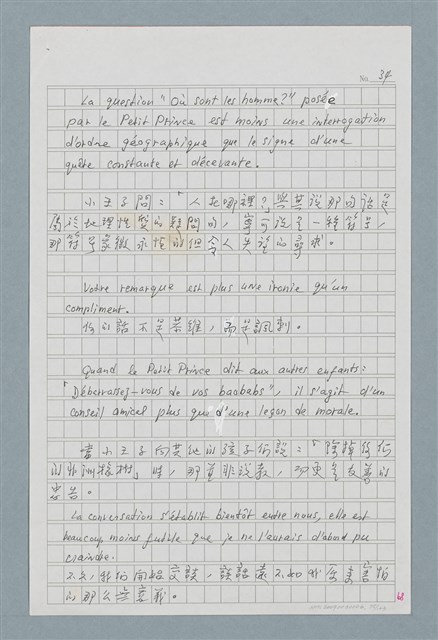 No. 34
La question "Où sont les homme?" posée
par le Petit Prince est moins une interrogation
d'ordre géographique que le signe d'une
quête constante et décevante.
小王子問:「人在哪裡?」與其說那句話是
屬於地理性質的疑問句,寧可說是一種符號,
那符號象徵永恆的但令人失望的尋求。
Votre remarque est plus une ironie qu'un
compliment.
你的話不是恭維,而是諷刺。
Quand le Petit Prince dit aux autres enfants:
"Débarrassez-vous de vos baobabs", il s'agit d'un
conseil amical plus que d'une leçon de morale.
當小王子向其他的孩子們說:「除掉你們
的非洲猴樹」時,那並非說教,而更是友善的
忠告。
La conversation s'établit bientôt entre nous, elle est
beaucoup moins futile que je ne l'aurais d'abord pu
craindre.
不久,我們開始交談,談話
的那么無意義。